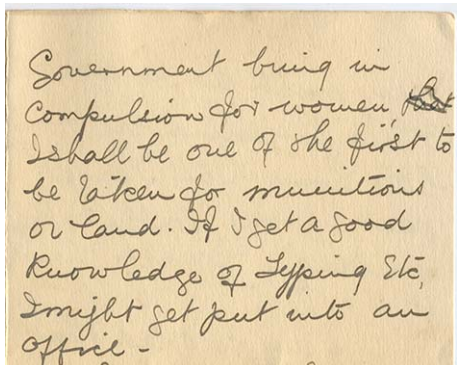 Government bring in
Compulsion for women,
I shall be one of the first to
be taken for munitions
or land. If I get a good
knowledge of Typing Etc,
I might get put into an
office -